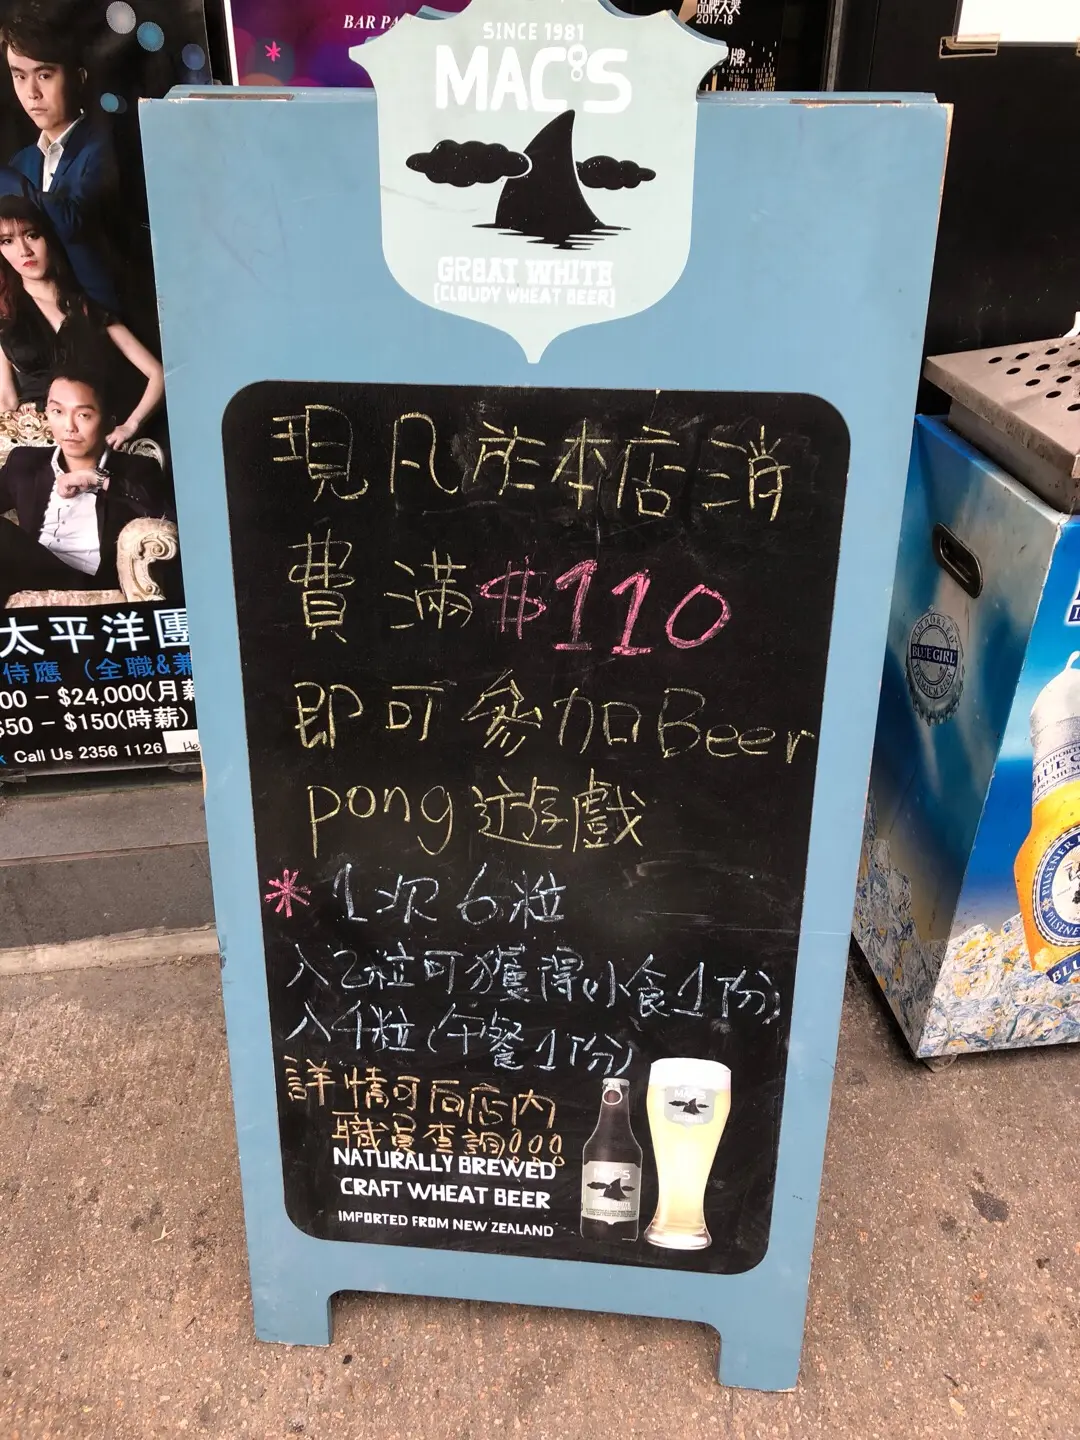 BAR PA
2017-18
牌
SINCE 1981
MAC'S
GREAT WHITE
(CLOUDY WHEAT BEER)
現凡於本店消
費滿$110
即可參加Beer
pong遊戲
* 1次6粒
入2粒可獲得(小食1份)
入4粒(午餐1份)
詳情可向店內
職員查詢!!!
NATURALLY BREWED
CRAFT WHEAT BEER
IMPORTED FROM NEW ZEALAND
MAC'S
太平洋團
侍應 (全職&兼
00 - $24,000(月薪
$50 - $150(時薪)
Call Us 2356 1126
He
BLUE GIRL
PREMIUM BEER
PILSENER
BLU